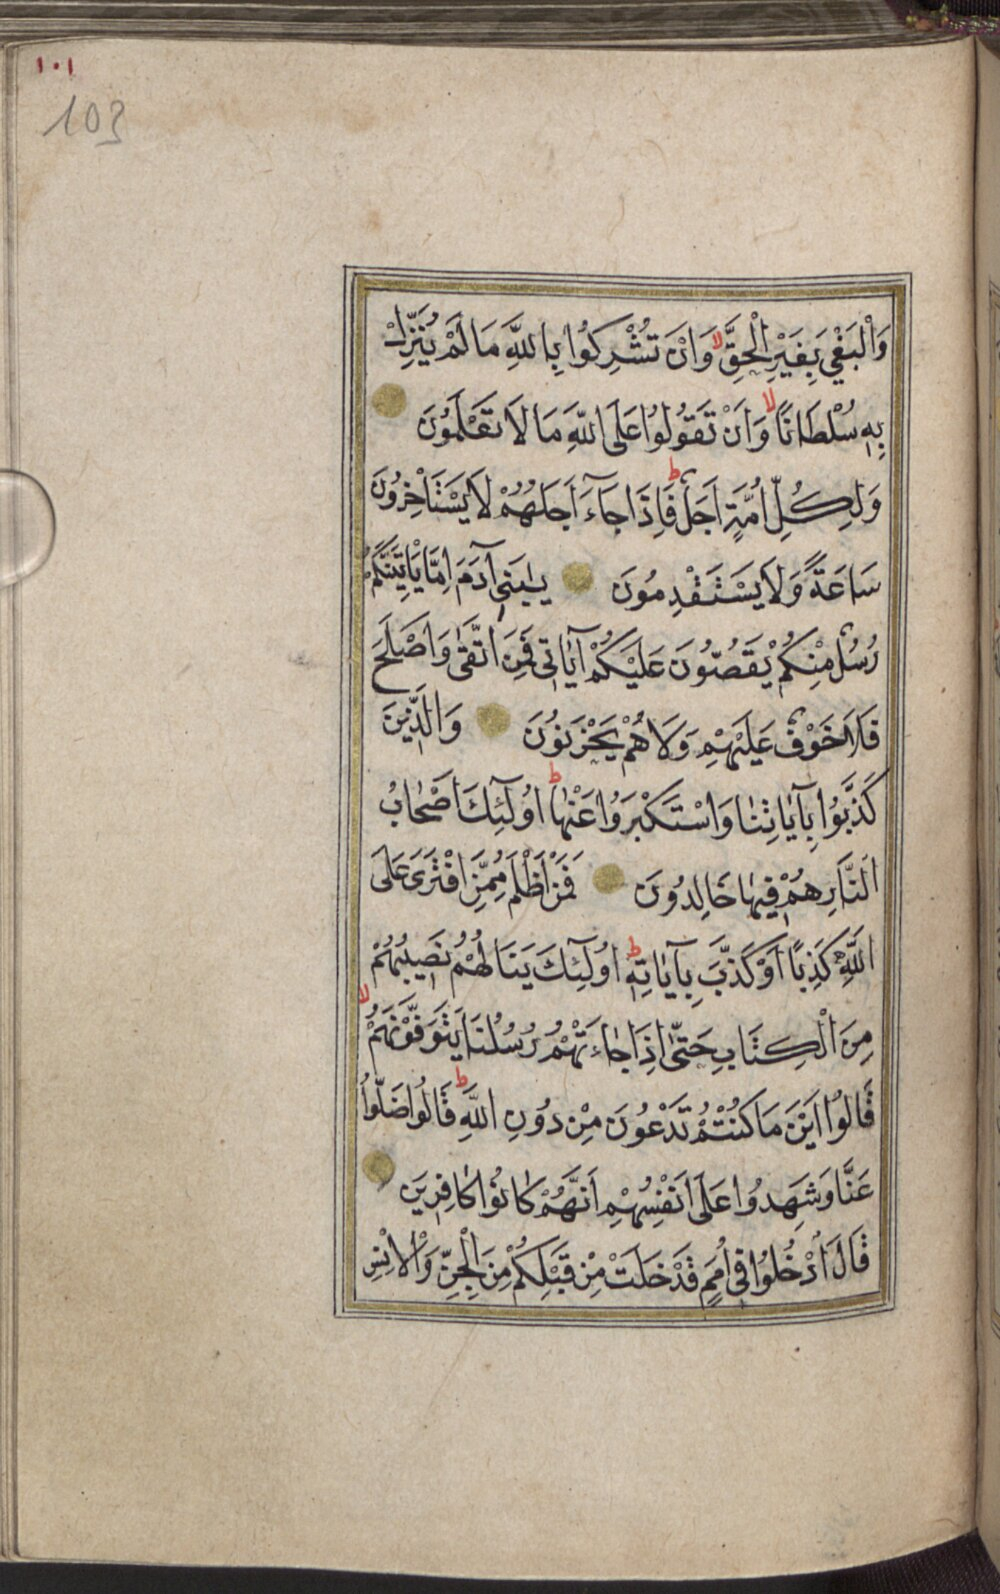 ١٠١
103
وَالْبَغْيَ بِغَيْرِ الْحَقِّ لا وَاَنْ تُشْرِكُوا بِاللّٰهِ مَا لَمْ يُنَزِّلْ
بِهِ سُلْطَانًا لا وَاَنْ تَقُولُوا عَلَى اللّٰهِ مَا لَا تَعْلَمُونَ
وَلِكُلِّ اُمَّةٍ اَجَلٌ ط فَاِذَا جَآءَ اَجَلُهُمْ لَا يَسْتَأْخِرُونَ
سَاعَةً وَلَا يَسْتَقْدِمُونَ يٰبَنِٓي اٰدَمَ اِمَّا يَأْتِيَنَّكُمْ
رُسُلٌ مِنْكُمْ يَقُصُّونَ عَلَيْكُمْ اٰيَاتِي فَمَنِ اتَّقٰى وَاَصْلَحَ
فَلَا خَوْفٌ عَلَيْهِمْ وَلَا هُمْ يَحْزَنُونَ وَالَّذِينَ
كَذَّبُوا بِاٰيَاتِنَا وَاسْتَكْبَرُوا عَنْهَا ط اُولٰٓئِكَ اَصْحَابُ
النَّارِ هُمْ فِيهَا خَالِدُونَ فَمَنْ اَظْلَمُ مِمَّنِ افْتَرٰى عَلَى
اللّٰهِ كَذِبًا اَوْ كَذَّبَ بِاٰيَاتِهِ ط اُولٰٓئِكَ يَنَالُهُمْ نَصِيبُهُمْ
مِنَ الْكِتَابِ حَتّٰى اِذَا جَاءَتْهُمْ رُسُلُنَا يَتَوَفَّوْنَهُمْ لا
قَالُوا اَيْنَ مَا كُنْتُمْ تَدْعُونَ مِنْ دُونِ اللّٰهِ ط قَالُوا ضَلُّوا
عَنَّا وَشَهِدُوا عَلَى اَنْفُسِهِمْ اَنَّهُمْ كَانُوا كَافِرِينَ
قَالَ ادْخُلُوا فِي اُمَمٍ قَدْ خَلَتْ مِنْ قَبْلِكُمْ مِنَ الْجِنِّ وَالْاِنْسِ